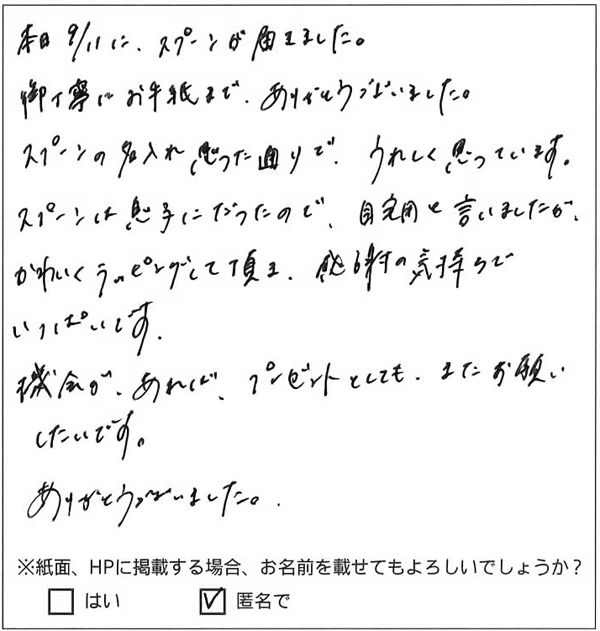 本日9/11に、スプーンが届きました。
御丁寧にお手紙まで、ありがとうございました。
スプーンの名入れ思った通りで、うれしく思っています。
スプーンは息子にだったので、自宅用と言いましたが、
かわいくラッピングして頂き、感謝の気持ちで
いっぱいです。
機会が、あれば、プレゼントとしても、またお願い
したいです。
ありがとうございました。
※紙面、HPに掲載する場合、お名前を載せてもよろしいでしょうか?
はい 匿名で